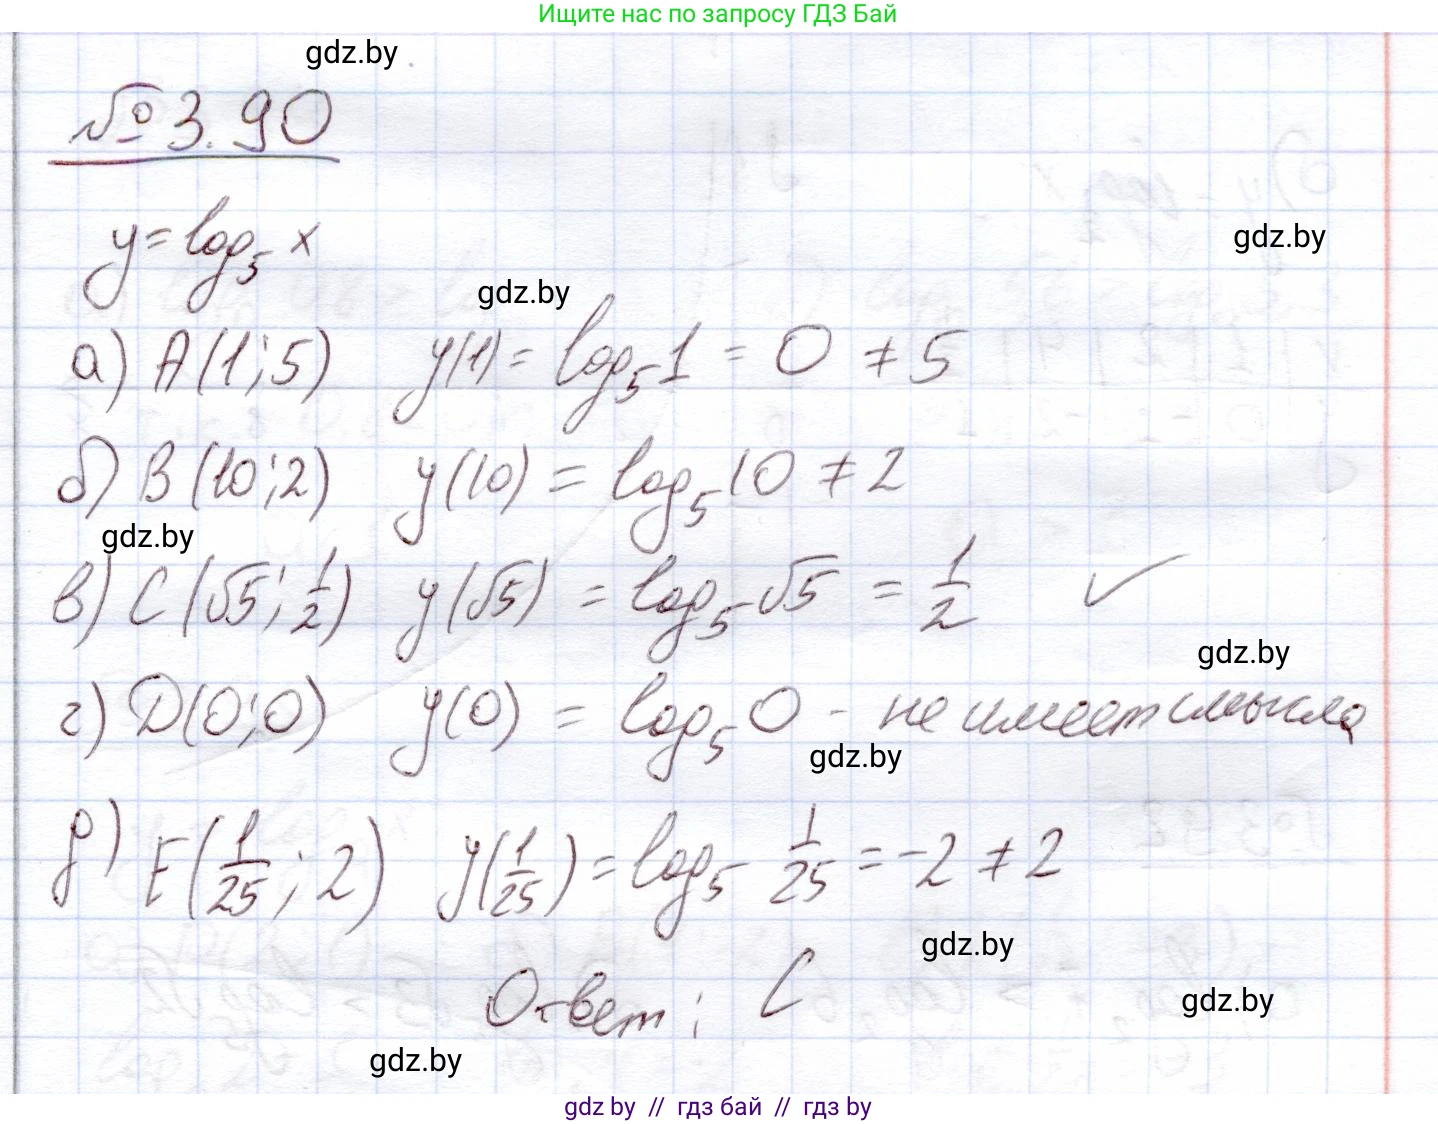 Ищите нас по запросу ГДЗ Бай
gdz.by
№ 3.90
y = log₅ x
gdz.by
gdz.by
а) A(1; 5) y(1) = log₅ 1 = 0 ≠ 5
б) B(10; 2) y(10) = log₅ 10 ≠ 2
gdz.by
в) C(√5; 1/2) y(√5) = log₅ √5 = 1/2 ✓
gdz.by
г) D(0; 0) y(0) = log₅ 0 - не имеет смысла
gdz.by
д) E(1/25; 2) y(1/25) = log₅ 1/25 = -2 ≠ 2
gdz.by
Ответ: C
gdz.by
gdz.by
gdz by // гдз бай // гдз by